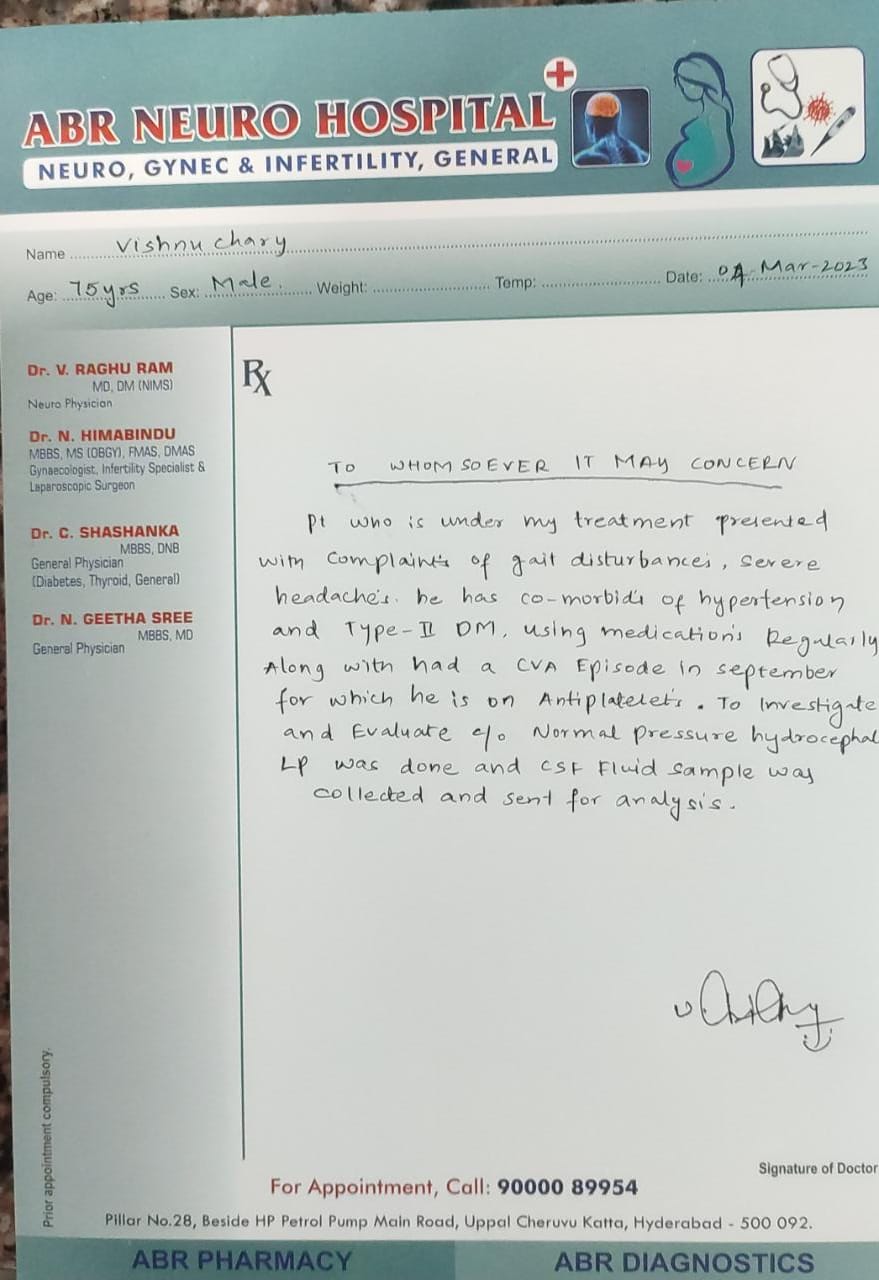 ABR NEURO HOSPITAL
NEURO, GYNEC & INFERTILITY, GENERAL
Name Vishnu chary
Age: 75yrs Sex: Male. Weight: Temp: Date: 04-Mar-2023
Dr. V. RAGHU RAM
MD, DM (NIMS)
Neuro Physician
Dr. N. HIMABINDU
MBBS, MS (OBGY), FMAS, DMAS
Gynaecologist, Infertility Specialist &
Laparoscopic Surgeon
Dr. C. SHASHANKA
MBBS, DNB
General Physician
(Diabetes, Thyroid, General)
Dr. N. GEETHA SREE
MBBS, MD
General Physician
Rx
TO WHOMSOEVER IT MAY CONCERN
Pt who is under my treatment presented
with complaints of gait disturbances, severe
headache's. he has co-morbid's of hypertension
and Type-II DM, using medication's Regularly
Along with had a CVA Episode in september
for which he is on Antiplatelet's. To Investigate
and Evaluate c/o Normal pressure hydrocephal
LP was done and CSF Fluid sample was
collected and sent for analysis.
Signature of Doctor
Prior appointment compulsory.
For Appointment, Call: 90000 89954
Pillar No.28, Beside HP Petrol Pump Main Road, Uppal Cheruvu Katta, Hyderabad - 500 092.
ABR PHARMACY ABR DIAGNOSTICS